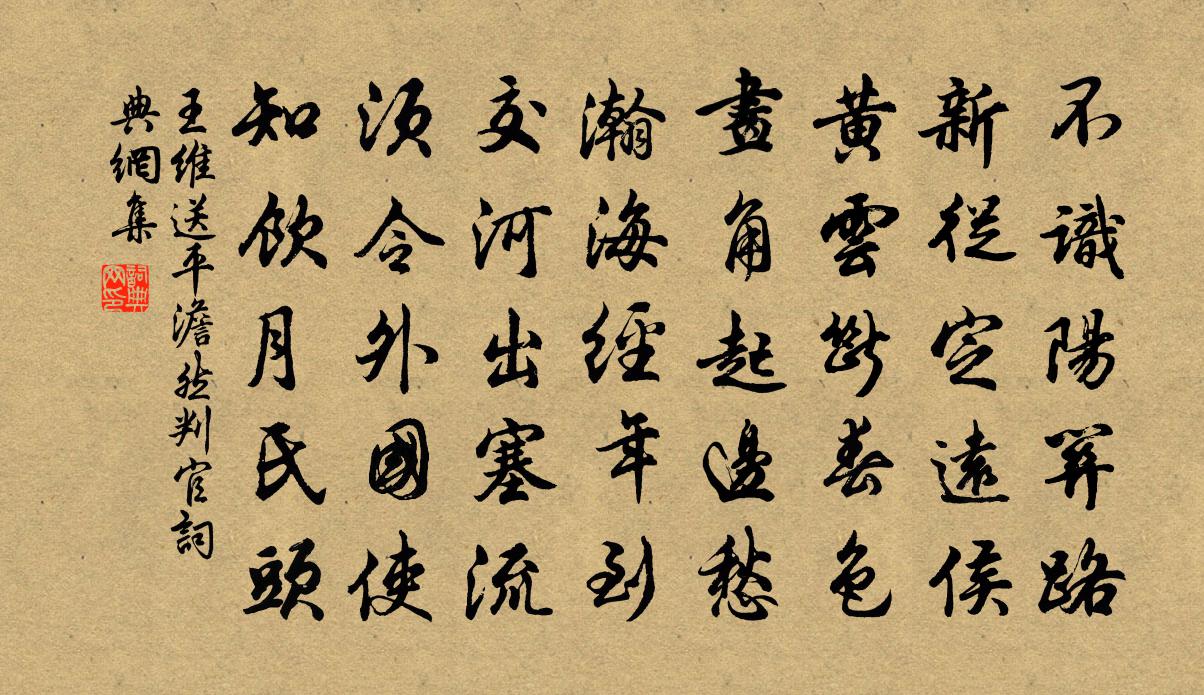 不識陽關路
新從定遠侯
黃雲斷春色
畫角起邊愁
瀚海經年到
交河出塞流
須令外國使
知飲月氏頭
王維送平澹然判官詞
典網集
詞典
网印